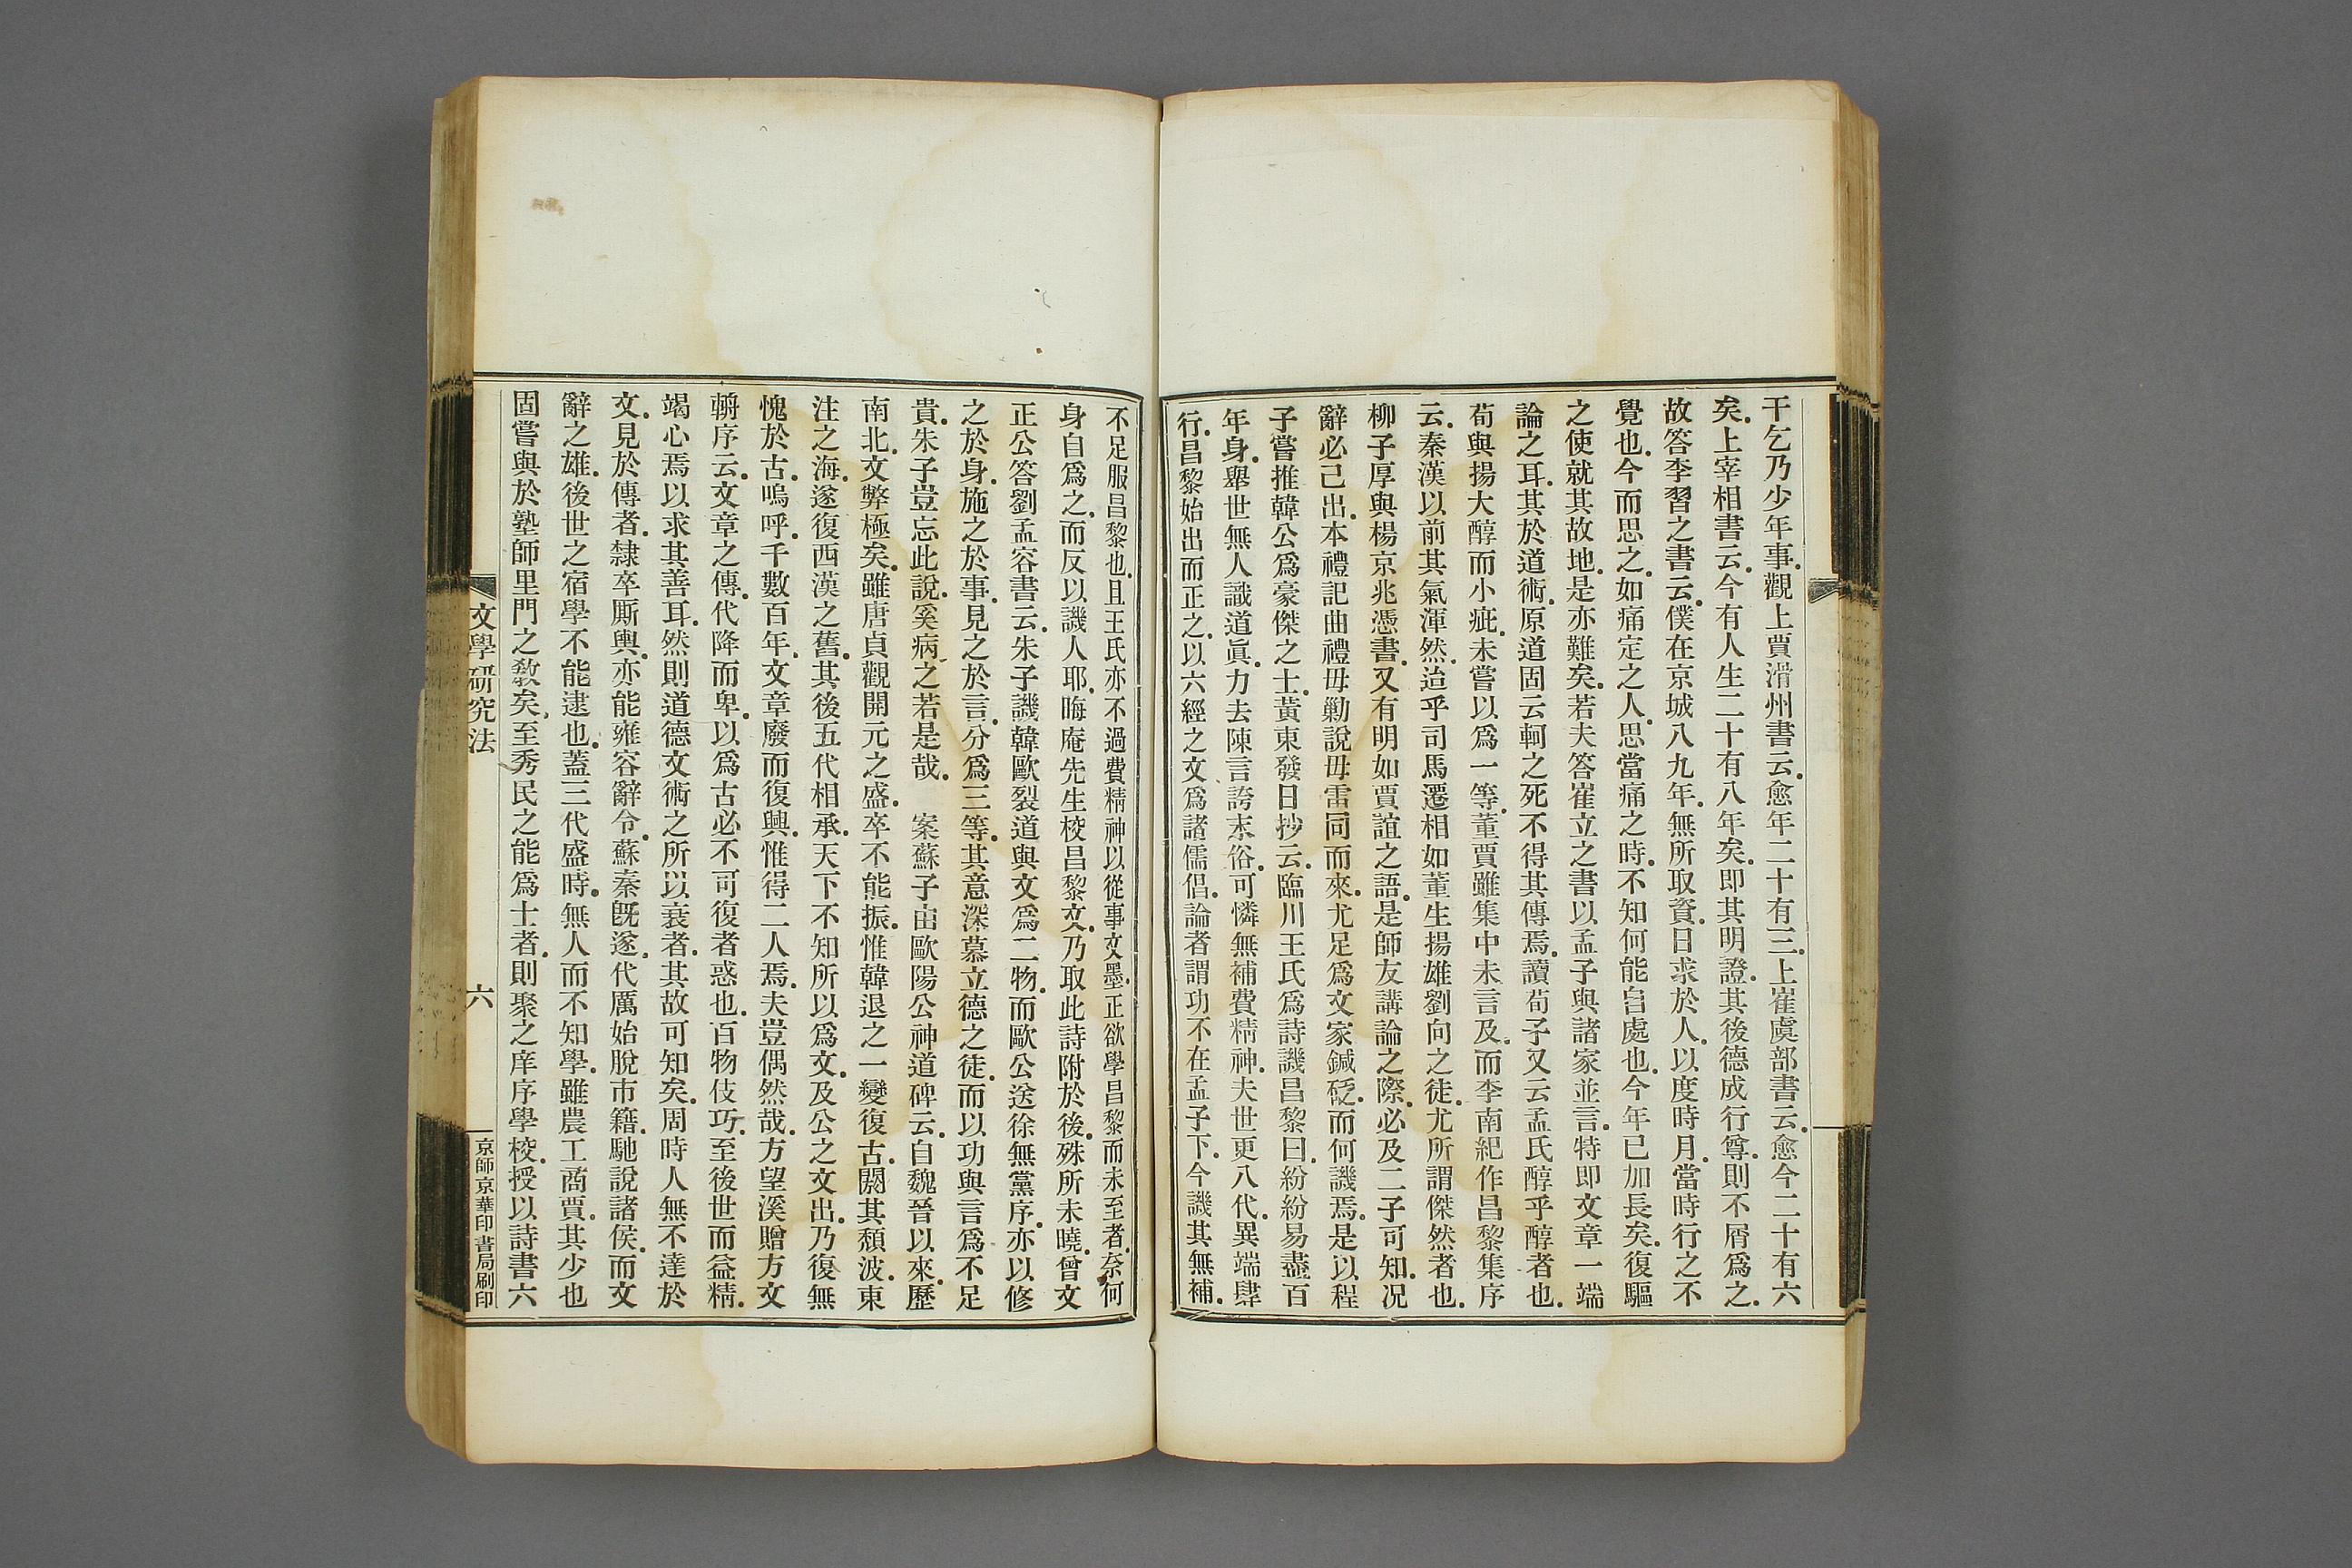 干乞乃少年事。觀上賈滑州書云。愈年二十有三。上崔虞部書云。愈今二十有六
矣。上宰相書云。今有人生二十有八年矣。卽其明證。其後德成行尊。則不屑爲之。
故答李習之書云。僕在京城八九年。無所取資。日求於人。以度時月。當時行之不
覺也。今而思之。如痛定之人。思當痛之時。不知何能自處也。今年已加長矣。復驅
之使就其故地。是亦難矣。若夫答崔立之書以孟子與諸家並言。特卽文章一端
論之耳。其於道術。原道固云軻之死不得其傳焉。讀荀子又云孟氏醇乎醇者也。
荀與揚大醇而小疵。未嘗以爲一等。董賈雖集中未言及。而李南紀作昌黎集序
云。秦漢以前其氣渾然。迨乎司馬遷相如董生揚雄劉向之徒。尤所謂傑然者也。
柳子厚與楊京兆憑書。又有明如賈誼之語。是師友講論之際。必及二子可知。况
辭必己出。本禮記曲禮毋勦說毋雷同而來。尤足爲文家鍼砭。而何譏焉。是以程
子嘗推韓公爲豪傑之士。黃東發日抄云。臨川王氏爲詩譏昌黎曰。紛紛易盡百
年身。舉世無人識道眞。力去陳言誇末俗。可憐無補費精神。夫世更八代。異端肆
行。昌黎始出而正之。以六經之文爲諸儒倡。論者謂功不在孟子下。今譏其無補。
不足服昌黎也。且王氏亦不過費精神以從事文墨。正欲學昌黎而未至者。奈何
身自爲之。而反以譏人耶。晦庵先生校昌黎文。乃取此詩附於後。殊所未曉。曾文
正公答劉孟容書云。朱子譏韓歐裂道與文爲二物。而歐公送徐無黨序。亦以修
之於身。施之於事。見之於言。分爲三等。其意深慕立德之徒。而以功與言爲不足
貴。朱子豈忘此說。奚病之若是哉。　案蘇子由歐陽公神道碑云。自魏晉以來。歷
南北。文弊極矣。雖唐貞觀開元之盛。卒不能振。惟韓退之一變復古。閼其頹波。東
注之海。遂復西漢之舊。其後五代相承。天下不知所以爲文。及公之文出。乃復無
愧於古。嗚呼。千數百年。文章廢而復興。惟得二人焉。夫豈偶然哉。方望溪贈方文
輈序云。文章之傳。代降而卑。以爲古必不可復者惑也。百物伎巧。至後世而益精。
竭心焉以求其善耳。然則道德文術之所以衰者。其故可知矣。周時人無不達於
文。見於傳者。隸卒廝輿。亦能雍容辭令。蘇秦旣遂。代厲始脫市籍。馳說諸侯。而文
辭之雄。後世之宿學不能逮也。蓋三代盛時。無人而不知學。雖農工商賈。其少也
固嘗與於塾師里門之敎矣。至秀民之能爲士者。則聚之庠序學校。授以詩書六
文學研究法
六
京師京華印書局刷印